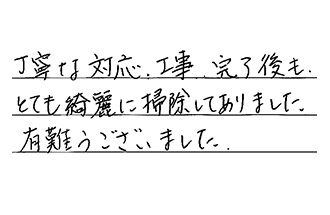 丁寧な対応、工事、完了後も、
とても綺麗に掃除してありました。
有難うございました。